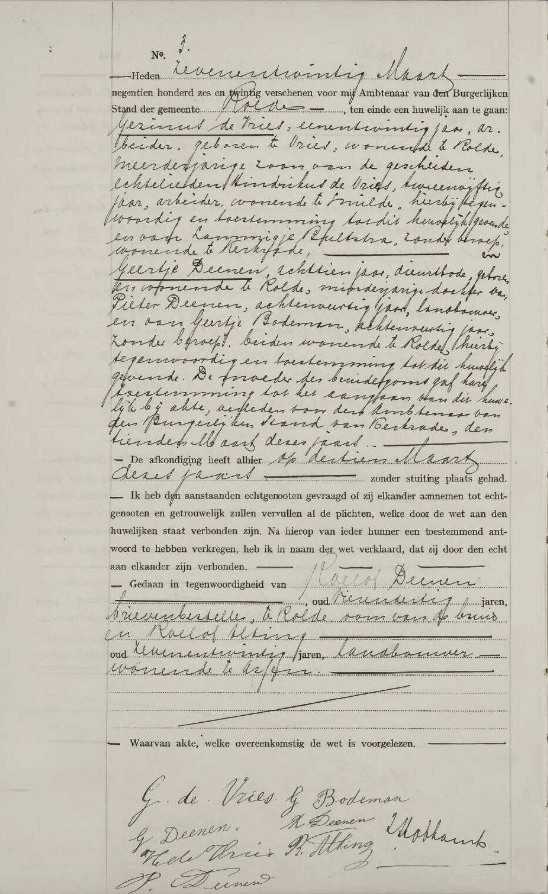 No. 3.
Heden zevenentwintig Maart
negentien honderd zes en twintig verschenen voor mij Ambtenaar van den Burgerlijken
Stand der gemeente Rolde, ten einde een huwelijk aan te gaan:
Gerinus de Vries, eenentwintig jaar, ar-
beider, geboren te Vries, wonende te Rolde,
meerderjarige zoon van de gescheiden
echtelieden Hindrikus de Vries, tweeenvijftig
jaar, arbeider, wonende te Smilde, hierbij tegen-
woordig en toestemming tot dit huwelijk gevende
en van Lammigje Bultstra, zonder beroep,
wonende te Kerkrade, en
Geertje Deenen, achttien jaar, dienstbode, geboren
en wonende te Rolde, minderjarige dochter van
Pieter Deenen, achtenveertig jaar, landbouwer,
en van Geertje Bodeman, achtenveertig jaar,
zonder beroep, beiden wonende te Rolde, hierbij
tegenwoordig en toestemming tot dit huwelijk
gevende. De moeder des bruidegoms gaf hare
toestemming tot het aangaan van dit huwe-
lijk bij akte, verleden voor den Ambtenaar van
den Burgerlijken Stand van Kerkrade, den
tienden Maart dezes jaars.
De afkondiging heeft alhier op dertien Maart
dezes jaars zonder stuiting plaats gehad.
Ik heb den aanstaanden echtgenooten gevraagd of zij elkander aannemen tot echt-
genooten en getrouwelijk zullen vervullen al de plichten, welke door de wet aan den
huwelijken staat verbonden zijn. Na hierop van ieder hunner een toestemmend ant-
woord te hebben verkregen, heb ik in naam der wet verklaard, dat zij door den echt
aan elkander zijn verbonden.
Gedaan in tegenwoordigheid van Roelof Deenen
, oud vierendertig jaren,
brievenbesteller, te Rolde, oom van de bruid
en Roelof Alting
oud zevenentwintig jaren, landbouwer
wonende te Assen.
Waarvan akte, welke overeenkomstig de wet is voorgelezen.
G. de Vries G Bodeman
G Deenen. R Deenen
H de Vries R. Alting
P. Deenen